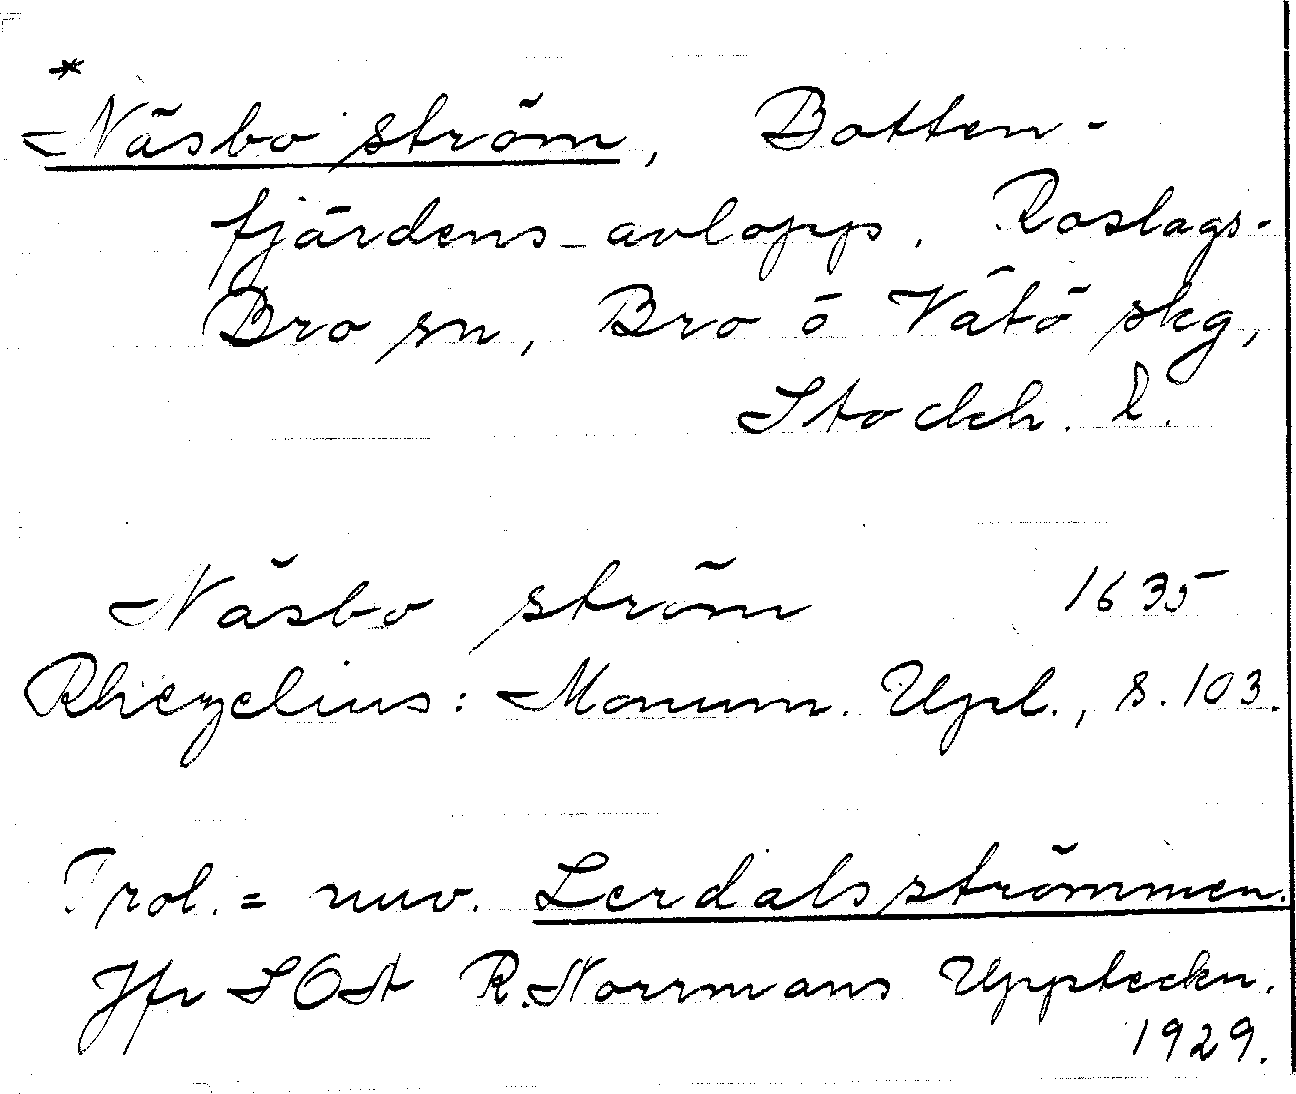 *
Näsbo ström, Botten-
fjärdens avlopp. Roslags-
Bro sn, Bro o Vätö skg,
Stockh. l.
Näsbo ström 1635
Rhezelius: Monum. Upl., s. 103.
Trol. = nuv. Lerdalsströmmen.
Jfr SOA R. Norrmans Uppteckn.
1929.